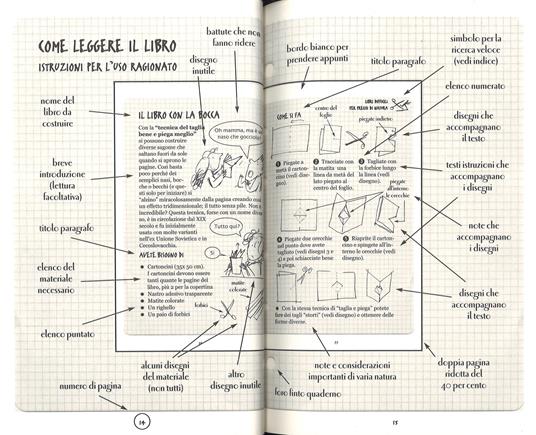 COME LEGGERE IL LIBRO
ISTRUZIONI PER L'USO RAGIONATO
battute che non
fanno ridere
disegno
inutile
nome del
libro da
costruire
breve
introduzione
(lettura
facoltativa)
titolo paragrafo
elenco del
materiale
necessario
elenco puntato
numero di pagina
IL LIBRO CON LA BOCCA
Con la "tecnica del taglia
bene e piega meglio"
si possono costruire
diverse sagome che
saltano fuori da sole
quando si aprono le
pagine. Così basta
poco perché dei
semplici nasi, boc-
che o becchi (e que-
sti solo per iniziare) si
"alzino" miracolosamente dalla pagina creando
un effetto tridimensionale; il tutto senza pile. Non
incredibile? Questa tecnica, forse con un nome
no, è in circolazione dal XIX
secolo e fu inizialmente
usata con molte varianti
nell'ex Unione Sovietica e in
Cecoslovacchia.
Oh mamma, ma è
naso che gocciola
Tutto qui?
Sì
AVETE BISOGNO DI
Cartoncini (35X 50 cm).
I cartoncini devono essere
tanti quante le pagine del
libro, più 2 per la copertina
Nastro adesivo trasparente
Matite colorate
Un righello
Un paio di forbici
matite
colorate
forbici
alcuni disegni
del materiale
(non tutti)
altro
disegno inutile
14
bordo bianco per
prendere appunti
titolo paragrafo
simbolo per la
ricerca veloce
(vedi indice)
elenco numerato
disegni che
accompagnano
il testo
testi istruzioni che
accompagnano
i disegni
note che
accompagnano
i disegni
disegni che
accompagnano
il testo
doppia pagina
ridotta del
40 per cento
COME SI FA
centro del
foglio
piegate indietro
1 Piegate a
metà il carton-
cino (vedi dise-
gno).
2 Tracciate con
la matita una
linea da metà del
lato piegato al
centro del foglio.
3 Tagliate con
le forbici lungo
la linea (vedi
disegno).
piegate
all'interno
le orecchie
4 Piegate due orecchie
sul punto dove avete
tagliato (vedi disegni 3 e
4) e poi schiacciate bene
la piega.
5 Riaprite il carton-
cino e spingete all'in-
terno le orecchie (vedi
disegno).
Con la stessa tecnica di "taglia e piega" potete
fare dei tagli "storti" (vedi disegno) e ottenere delle
forme diverse.
note e considerazioni
importanti di varia natura
foro finto quaderno
15